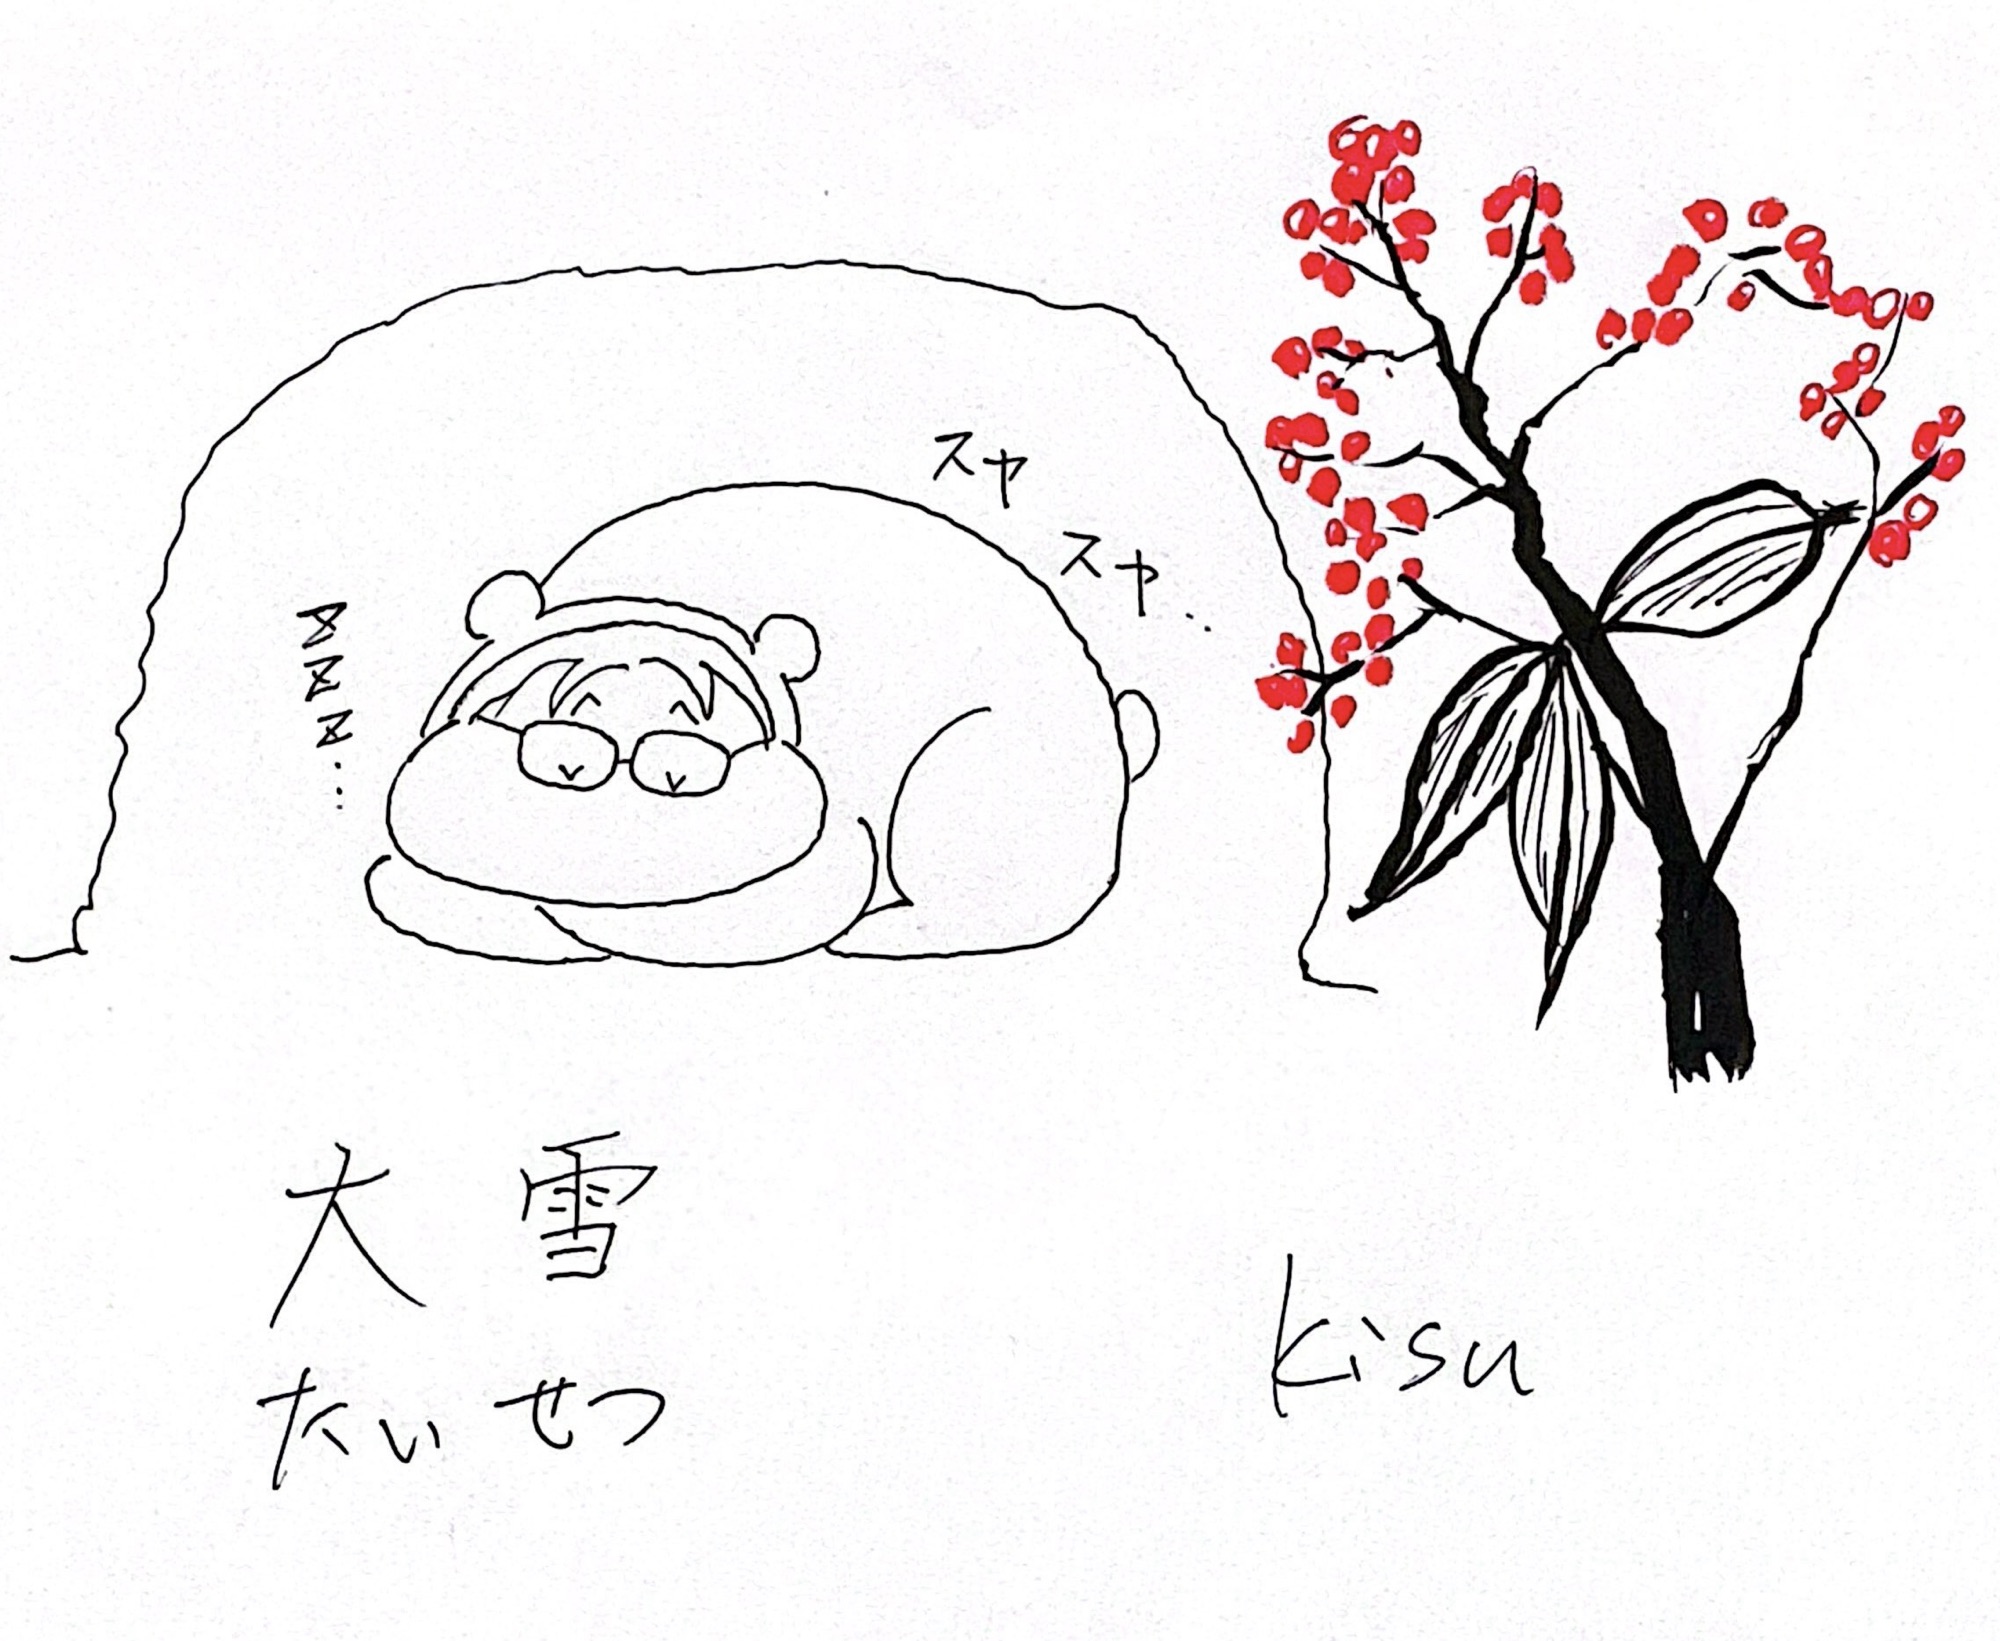 スヤ
スヤ..
zzz...
大雪
たいせつ
kisu